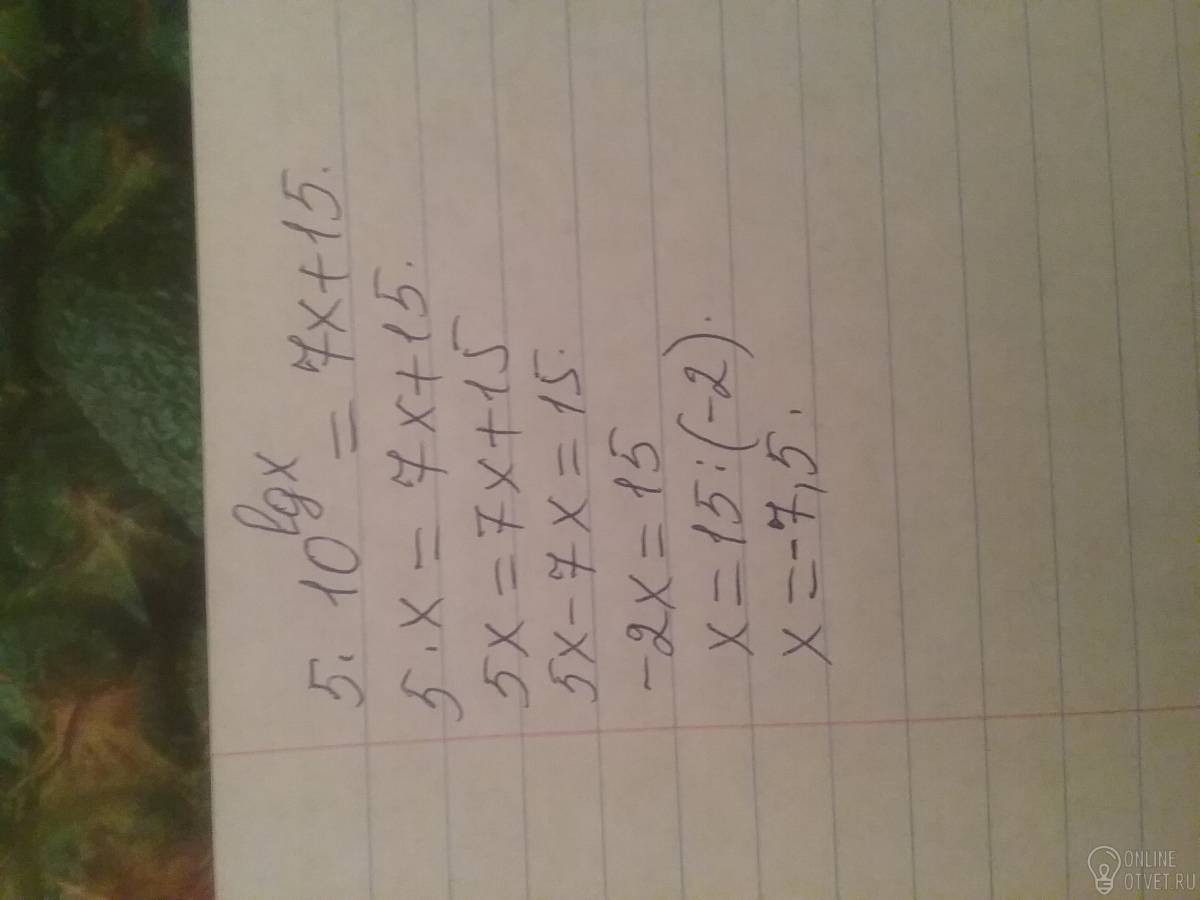 5. 10^lgx = 7x+15.
5. x = 7x+15.
5x = 7x+15
5x-7x=15.
-2x=15
x=15:(-2).
x=-7,5.
ONLINE
OTVET.RU